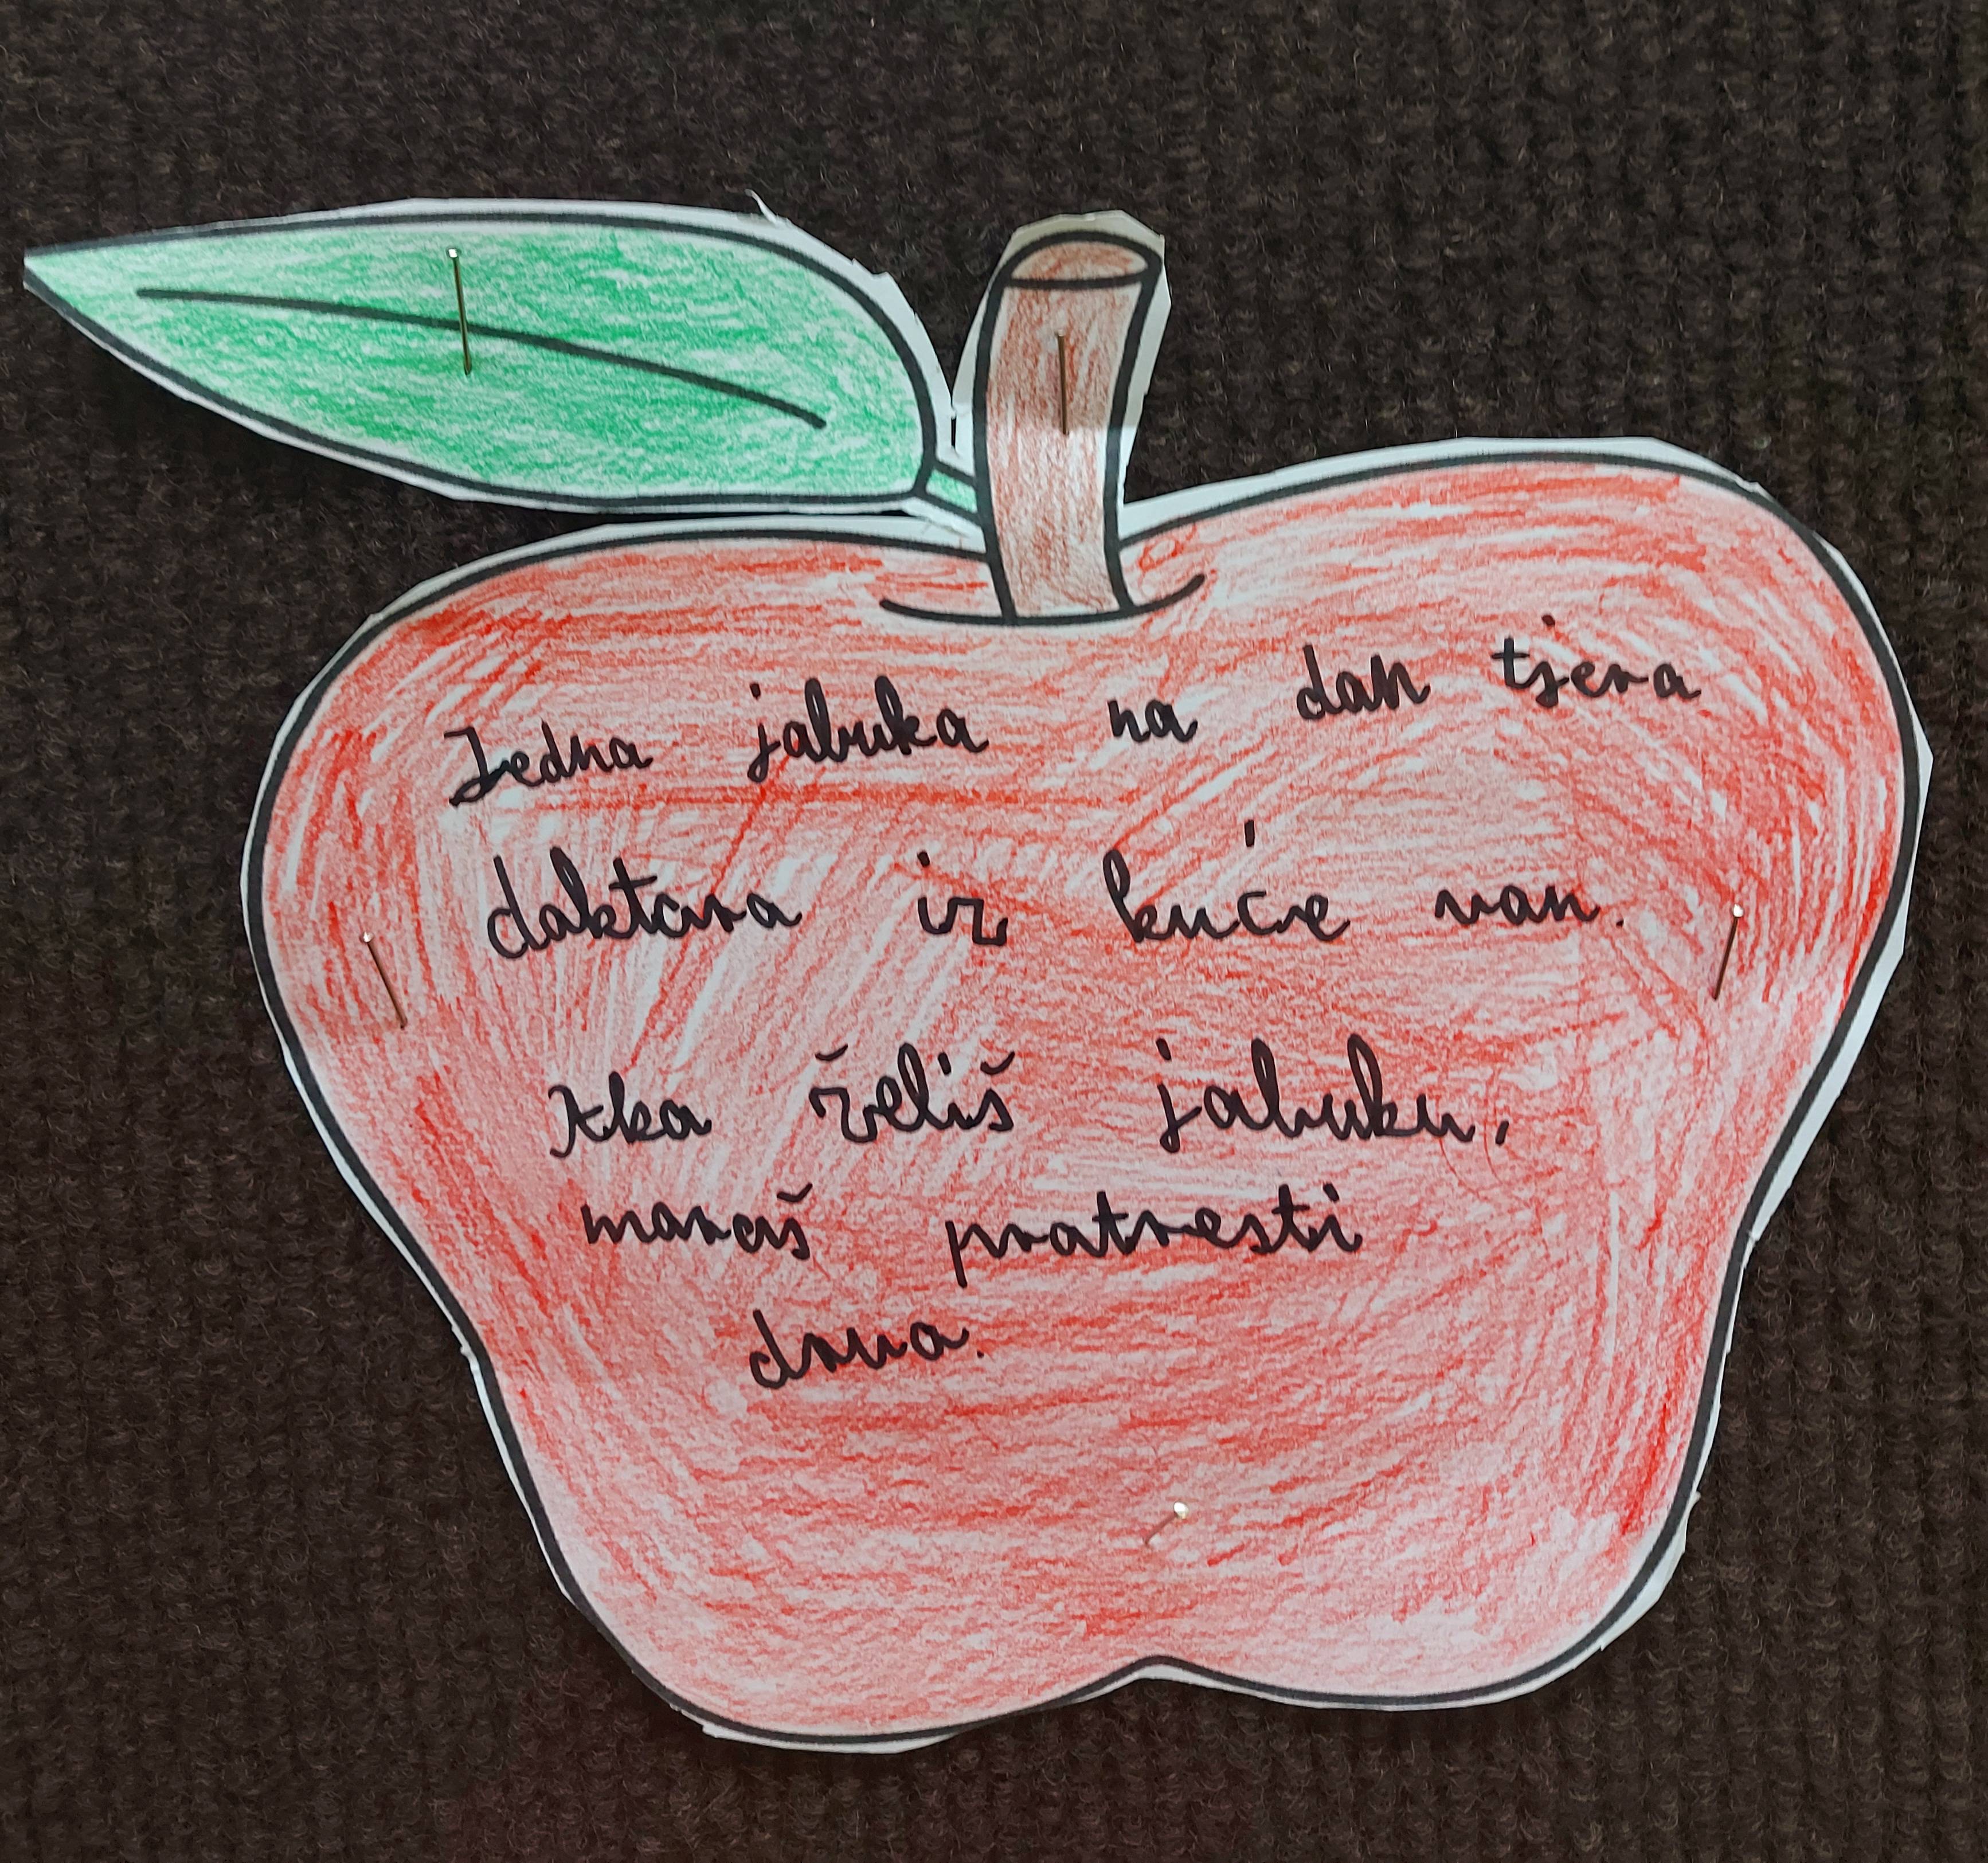 Jedna jabuka na dan tjera
doktora iz kuće van.
Ako želiš jabuku,
moraš protresti
drvo.